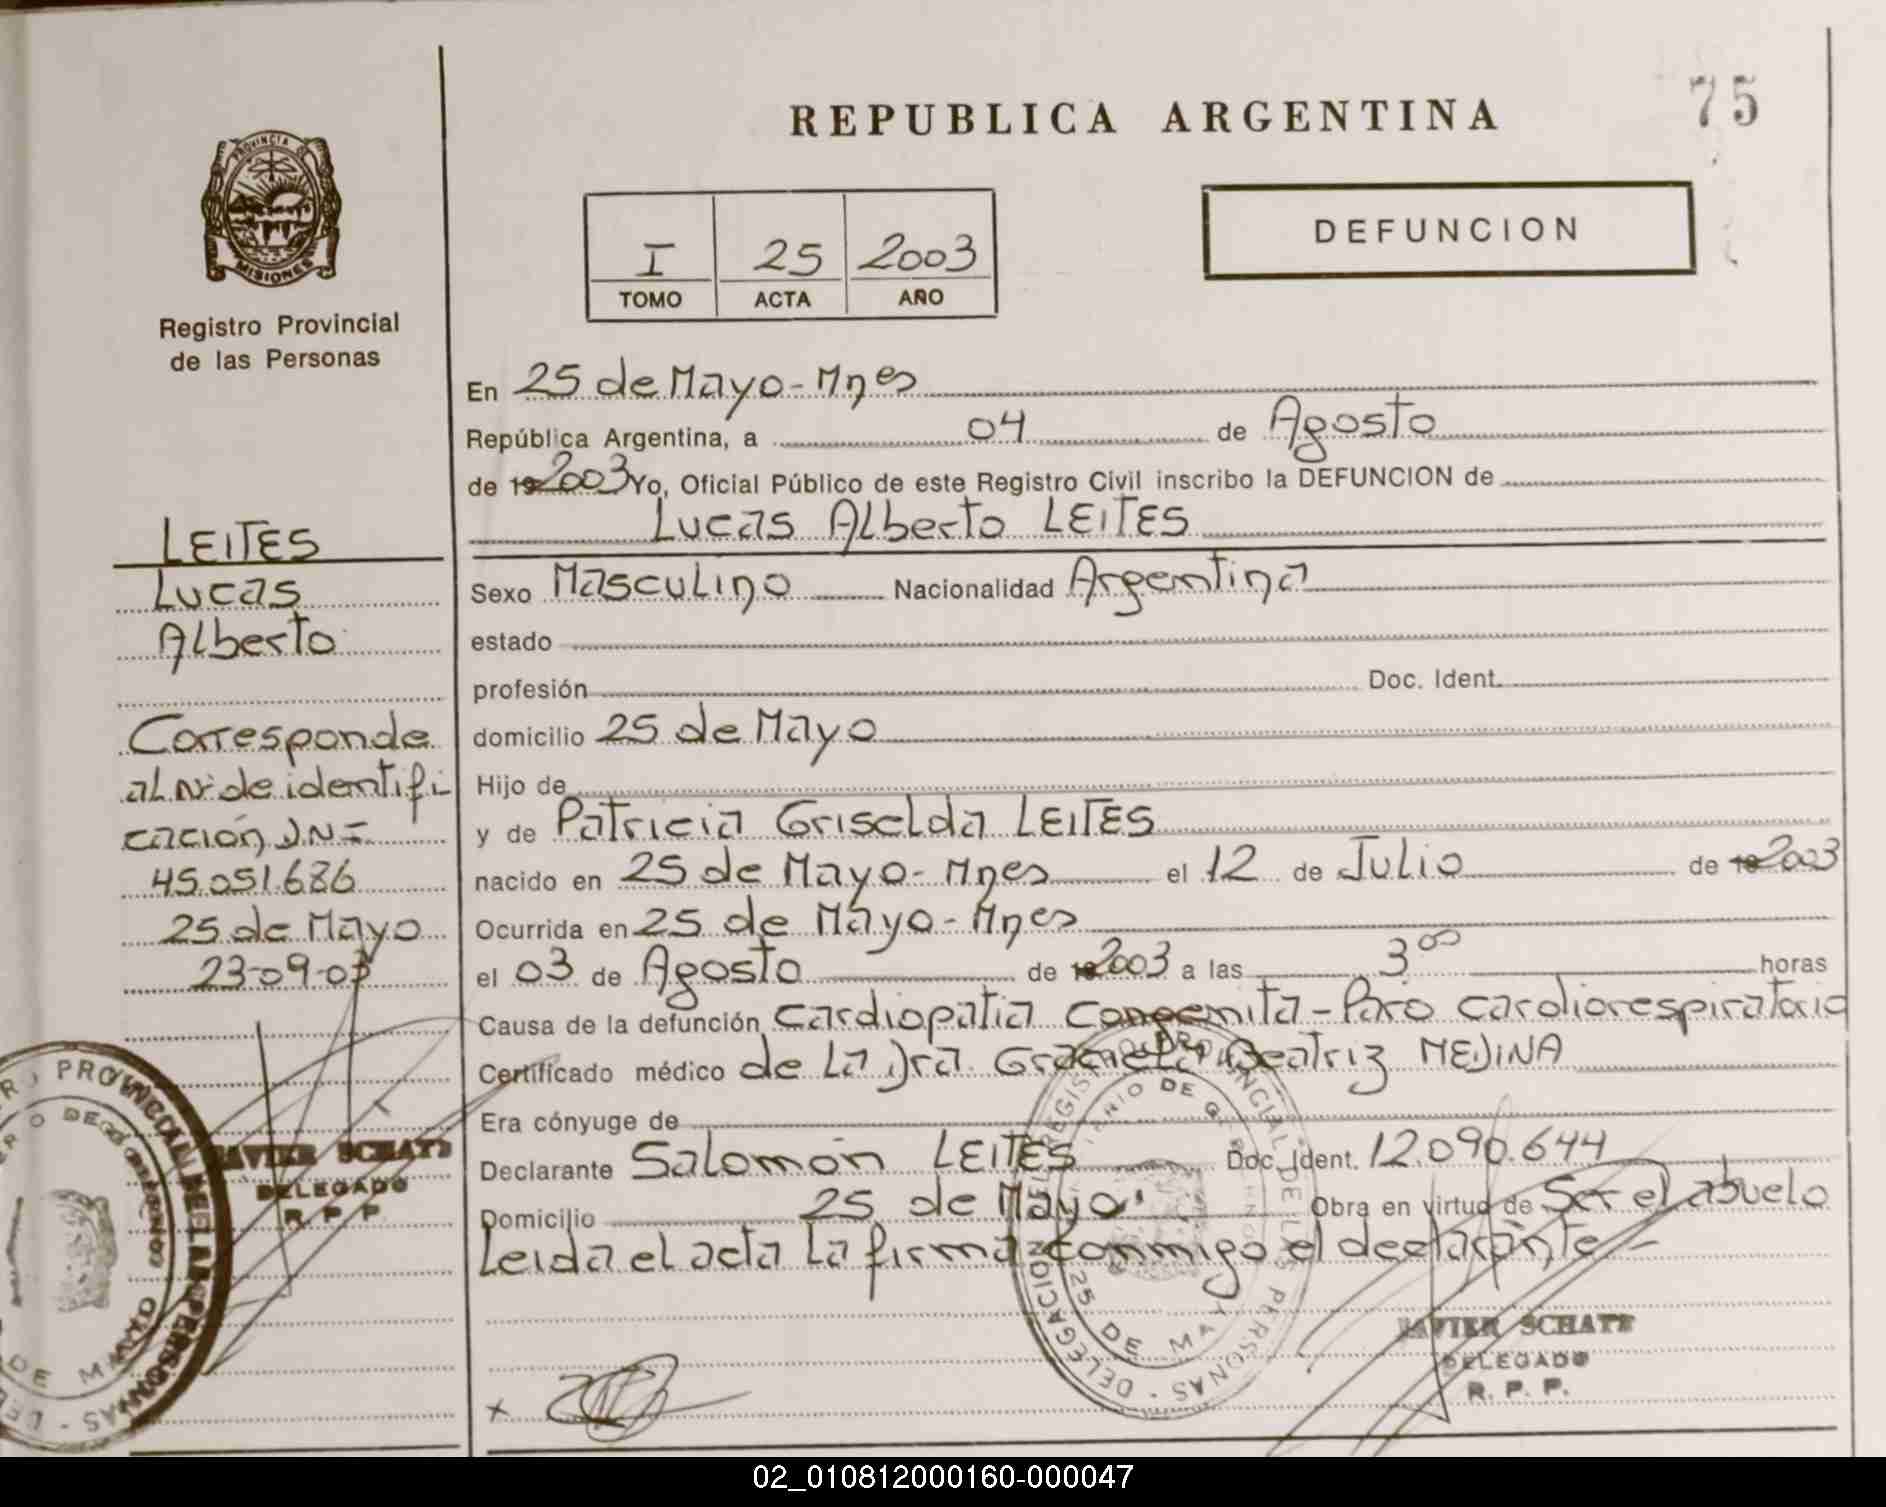 REPUBLICA ARGENTINA
75
PROVINCIA DE
MISIONES
Registro Provincial
de las Personas
I 25 2003
TOMO ACTA AÑO
DEFUNCION
En 25 de Mayo - Mnes
República Argentina, a 04 de Agosto
de 19 2003 Yo, Oficial Público de este Registro Civil inscribo la DEFUNCION de
Lucas Alberto LEITES
Sexo Masculino Nacionalidad Argentina
estado
profesión Doc. Ident.
domicilio 25 de Mayo
Hijo de
y de Patricia Griselda LEITES
nacido en 25 de Mayo - Mnes el 12 de Julio de 19 2003
Ocurrida en 25 de Mayo - Mnes
el 03 de Agosto de 19 2003 a las 3 00 horas
Causa de la defunción Cardiopatia Congenita - Paro cardiorespiratorio
Certificado médico de La Dra. Graciela Beatriz MEDINA
Era cónyuge de
Declarante Salomón LEITES Doc. Ident. 12.090.644
Domicilio 25 de Mayo. Obra en virtud de Ser el abuelo
Leida el acta La firma conmigo el declarante -
LEITES
Lucas
Alberto
Corresponde
al Nº de identifi
cación D.N.I.
45.051.686
25 de Mayo
23-09-03
JAVIER SCHATZ
DELEGADO
R. P. P.
JAVIER SCHATZ
DELEGADO
R. P. P.
REGISTRO PROVINCIAL DE LAS PERSONAS - DELEGACION
MINISTERIO DE GOBIERNO
25 DE MAYO
PROVINCIAL DE LAS PERSONAS
DE GOBIERNO
DE MAYO
x
02_010812000160-000047